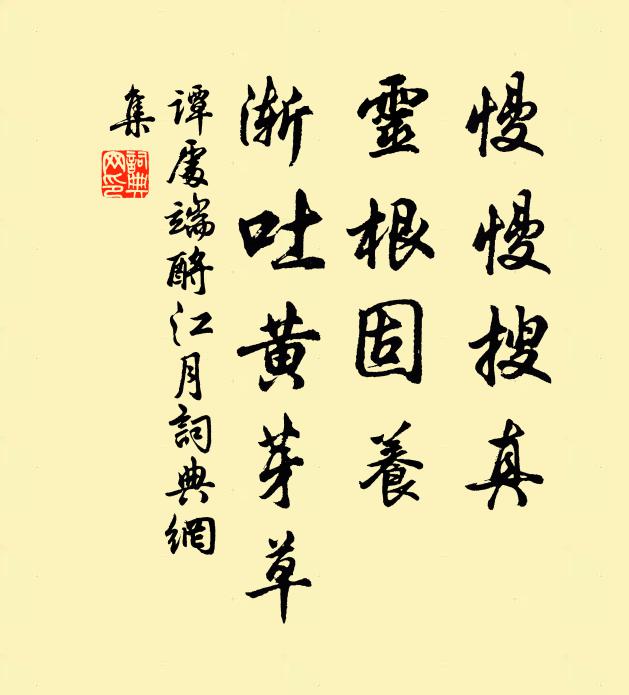 慢慢搜真
靈根固養
漸吐黃芽草
譚處端酹江月詞典網
集
詞典
网印